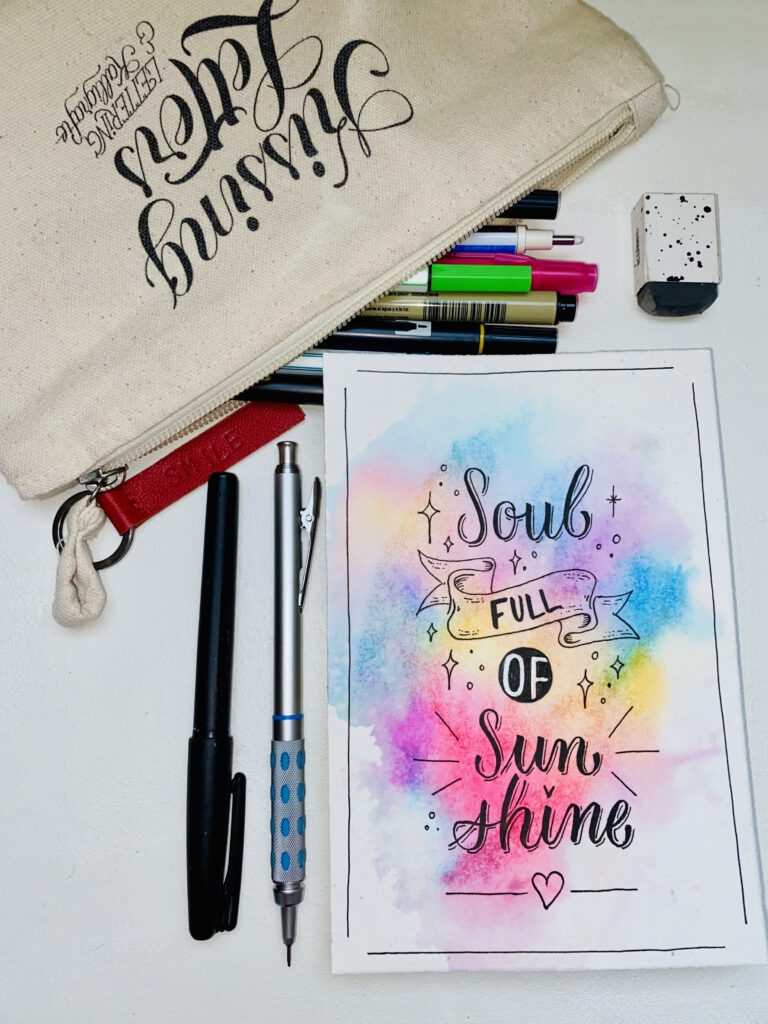 Kissing
Letters
LETTERING
& Kalligrafie
SMILE
Soul
FULL
OF
Sun
shine